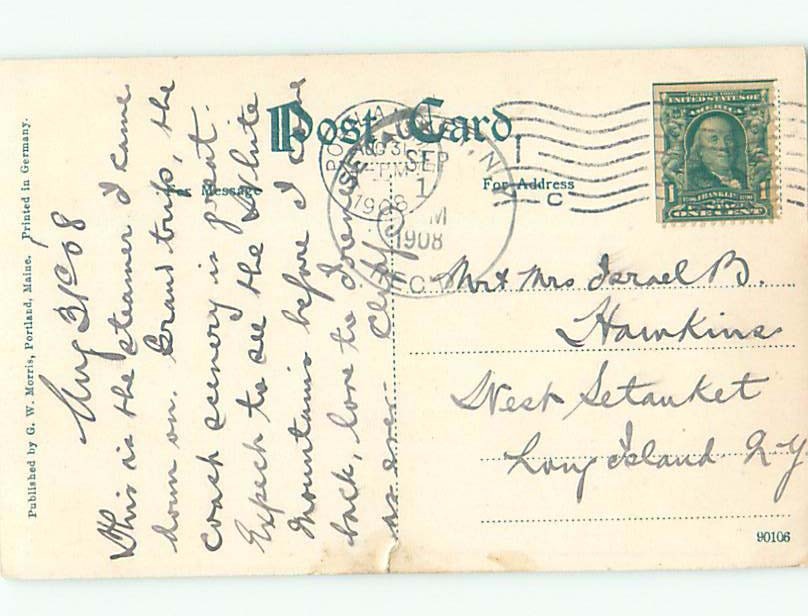 Post Card
For Message
For Address
Published by G. W. Morris, Portland, Maine. Printed in Germany.
Aug 31st 08
This is the steamer I came
down on. Grand trip, the
coast scenery is great.
Expect to see the White
Mountains before I come
back, love to Florence
as ever. Cliff
AUG 31
1908
SEP
1
M
1908
REC'D
UNITED STATES OF
AMERICA
1 FRANKLIN 1
ONE CENT
C
Mr & Mrs Israel B.
Hawkins
West Setauket
Long Island N.Y.
90106